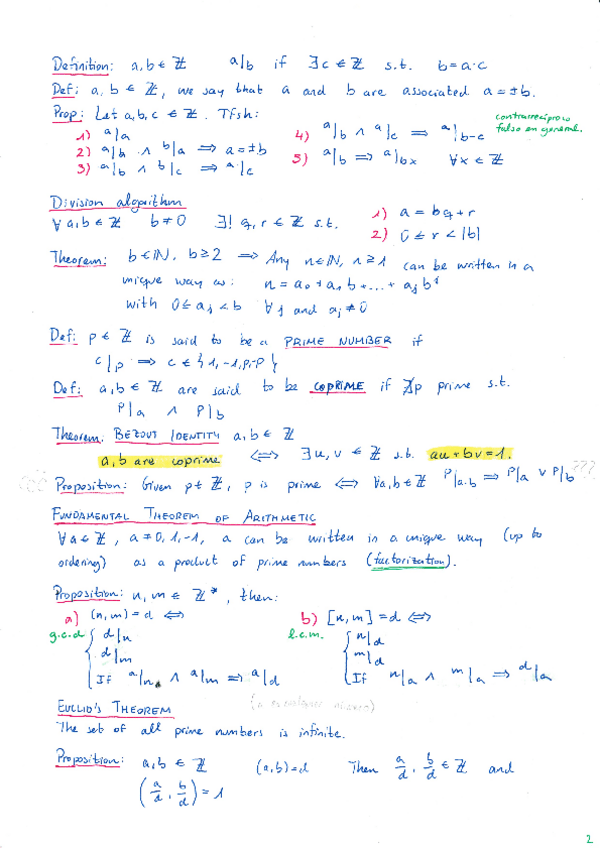 Definition: a, b ∈ ℤ a|b if ∃c ∈ ℤ s.t. b = a·c
Def: a, b ∈ ℤ, we say that a and b are associated a = ±b.
Prop: Let a, b, c ∈ ℤ. Tfsh:
contrarrecíproco falso en general.
1) a|a
4) a|b ∧ a|c ⟹ a|b-c
2) a|b ∧ b|a ⟹ a = ±b
5) a|b ⟹ a|bx ∀x ∈ ℤ
3) a|b ∧ b|c ⟹ a|c
Division algorithm
∀a, b ∈ ℤ b ≠ 0 ∃! q, r ∈ ℤ s.t. 1) a = bq + r
2) 0 ≤ r < |b|
Theorem: b ∈ ℕ, b ≥ 2 ⟹ Any n ∈ ℕ, n ≥ 1 can be written in a
unique way as: n = a₀ + a₁b + ... + aⱼbʲ
with 0 ≤ aⱼ < b ∀j and aⱼ ≠ 0
Def: p ∈ ℤ is said to be a PRIME NUMBER if
c|p ⟹ c ∈ {1, -1, p, -p}
Def: a, b ∈ ℤ are said to be COPRIME if ∄p prime s.t.
p|a ∧ p|b
Theorem: BEZOUT IDENTITY a, b ∈ ℤ
a, b are coprime ⟺ ∃u, v ∈ ℤ s.t. au + bv = 1.
Proposition: Given p ∈ ℤ, p is prime ⟺ ∀a, b ∈ ℤ p|a·b ⟹ p|a ∨ p|b ???
FUNDAMENTAL THEOREM OF ARITHMETIC
∀a ∈ ℤ, a ≠ 0, 1, -1, a can be written in a unique way (up to
ordering) as a product of prime numbers (factorization).
Proposition: n, m ∈ ℤ*, then:
a) (n, m) = d ⟺
b) [n, m] = d ⟺
g.c.d { d|n
l.c.m. { n|d
d|m
m|d
If a|n ∧ a|m ⟹ a|d
If n|a ∧ m|a ⟹ d|a
EUCLID'S THEOREM
The set of all prime numbers is infinite.
Proposition: a, b ∈ ℤ (a, b) = d Then a/d, b/d ∈ ℤ and
(a/d, b/d) = 1
2